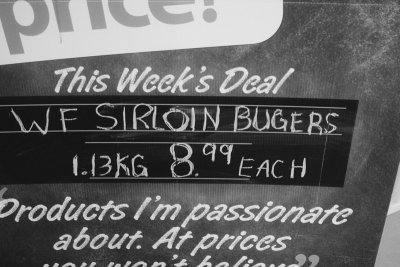 price!
This Week's Deal
WF SIRLOIN BUGERS
1.13KG 8.99 EACH
Products I'm passionate
about. At prices
you won't believe"